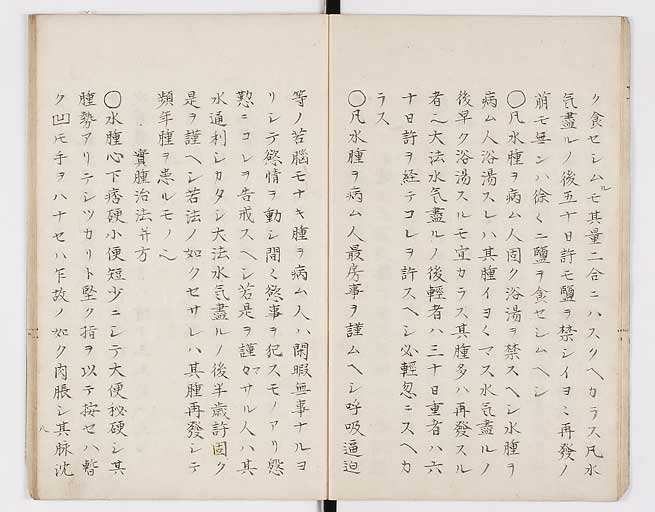 ク食セシムルモ其量二合ニハスクヘカラス凡水
気盡ルノ後五十日許モ鹽ヲ禁シイヨヽ再發ノ
萠モ無シハ徐くニ鹽ヲ食セシムヘシ
〇凡水腫ヲ病ム人固ク浴湯ヲ禁スヘシ水腫ヲ
病ム人浴湯スレハ其腫イヨくマス水気盡ルノ
後早ク浴湯スルモ宜カラス其腫多ハ再發スル
者也大法水気盡ルノ後輕者ハ三十日重者ハ六
十日許ヲ経テコレヲ許スヘシ必輕忽ニスヘカ
ラス
〇凡水腫ヲ病ム人最房事ヲ謹ムヘシ呼吸逼迫
等ノ苦腦モナキ腫ヲ病ム人ハ閑暇無事ナルヨ
リシテ慾情ヲ動シ間く慾事ヲ犯スモノアリ慇
懃ニコレヲ告戒スヘシ若是ヲ謹マサル人ハ其
水通利シカタシ大法水気盡ルノ後半歳許固ク
是ヲ謹ヘシ若法ノ如クセサレハ其腫再發シテ
頻年腫ヲ患ルモノ也
實腫治法并方
〇水腫心下痞硬小便短少ニシテ大便秘硬シ其
腫勢アリテシツカリト堅ク指ヲ以テ按セハ暫
ク凹モ手ヲハナセハ乍故ノ如ク内脹シ其脉沈
八